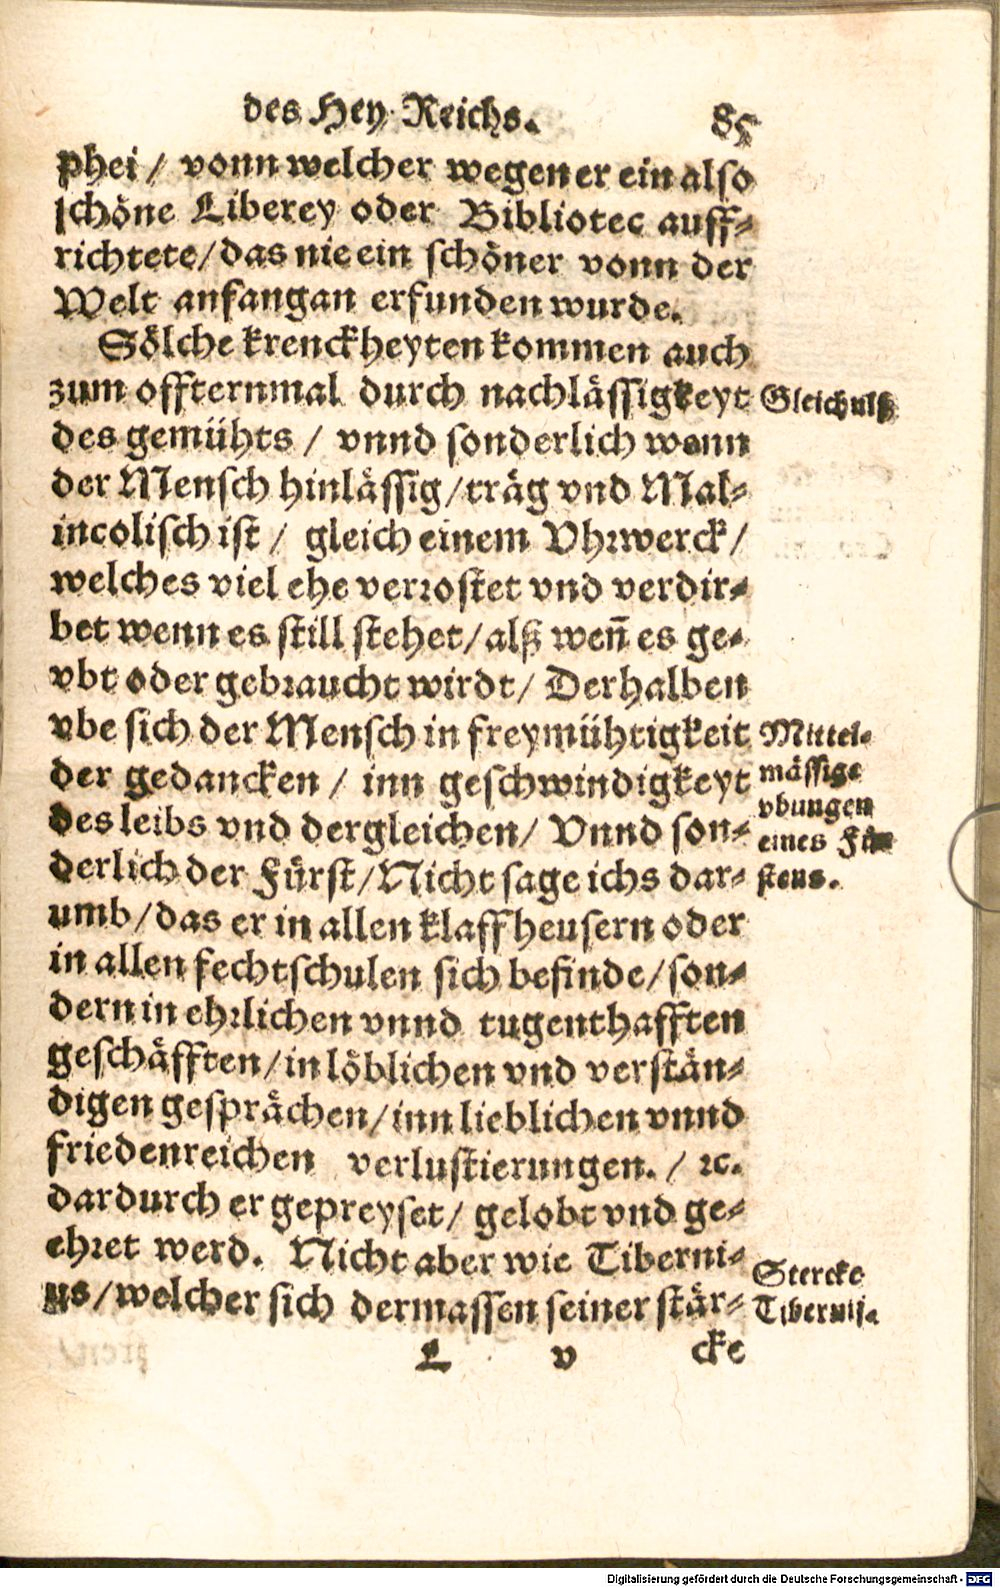 des Hey. Reichs. 85
phei / vonn welcher wegen er ein also
schöne Liberey oder Bibliotec auff-
richtete/ das nie ein schöner vonn der
Welt anfangan erfunden wurde.
Sölche krenckheyten kommen auch
zum offternmal durch nachlässigkeyt
Gleichnuß
des gemühts / vnnd sonderlich wann
der Mensch hinlässig/ träg vnd Mal-
incolisch ist / gleich einem Vhrwerck/
welches viel ehe verrostet vnd verdir-
bet wenn es still stehet/ alß weñ es ge-
vbt oder gebraucht wirdt/ Derhalben
vbe sich der Mensch in freymühtigkeit
der gedancken / inn geschwindigkeyt
des leibs vnd dergleichen/ Vnnd son-
derlich der Fürst/ Nicht sage ichs dar-
Mittel-
mässige
vbungen
eines Für-
stens.
umb/ das er in allen klaffheusern oder
in allen fechtschulen sich befinde/ son-
dern in ehrlichen vnnd tugenthafften
geschäfften/ in löblichen vnd verstän-
digen gesprächen/ inn lieblichen vnnd
friedenreichen verlustierungen. / ꝛc.
dardurch er gepreyset/ gelobt vnd ge-
ehret werd. Nicht aber wie Tiberni-
us/ welcher sich dermassen seiner stär-
Stercke
Tibernij.
L v cke
Digitalisierung gefördert durch die Deutsche Forschungsgemeinschaft - DFG